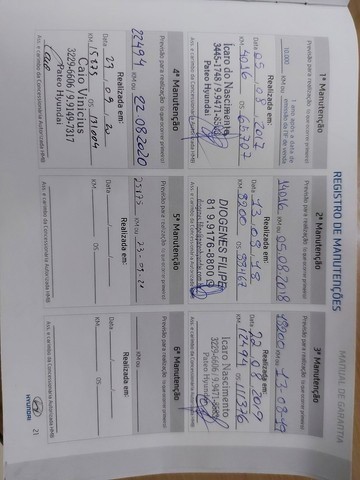 MANUAL DE GARANTIA
REGISTRO DE MANUTENÇÕES
1ª Manutenção
Previsão para realização (o que ocorrer primeiro)
10.000 KM ou 1 ano após a data de emissão da NF de Venda
Realizada em:
Data 05 / 08 / 2017
KM 4016 OS 65707
Icaro do Nascimento
3445-1748 / 9.9471-
Pateo Hyundai
Ass. e carimbo da Concessionária Autorizada HMB
2ª Manutenção
Previsão para realização (o que ocorrer primeiro)
14016 KM ou 05.08.2018
Realizada em:
Data 13 / 08 / 18
KM 9200 OS
DIOGENES FILIPE
81 9.9176-8800
Ass. e carimbo da Concessionária Autorizada HMB
3ª Manutenção
Previsão para realização (o que ocorrer primeiro)
19200 KM ou 13-08-19
Realizada em:
Data 22 / 08 / 2019
KM 12494 OS 111376
Icaro Nascimento
3229-6606 / 9.9471-
Pateo Hyundai
Ass. e carimbo da Concessionária Autorizada HMB
4ª Manutenção
Previsão para realização (o que ocorrer primeiro)
22494 KM ou 22.08.2020
Realizada em:
Data 23 / 09 / 20
KM 15175 OS 131004
Caio Vinicius
3229-6606 / 9.9149-7317
Pateo Hyundai
Caio
Ass. e carimbo da Concessionária Autorizada HMB
5ª Manutenção
Previsão para realização (o que ocorrer primeiro)
25175 KM ou 23-09-21
Realizada em:
Data / /
KM OS
Ass. e carimbo da Concessionária Autorizada HMB
6ª Manutenção
Previsão para realização (o que ocorrer primeiro)
KM ou
Realizada em:
Data / /
KM OS
Ass. e carimbo da Concessionária Autorizada HMB
HYUNDAI
21